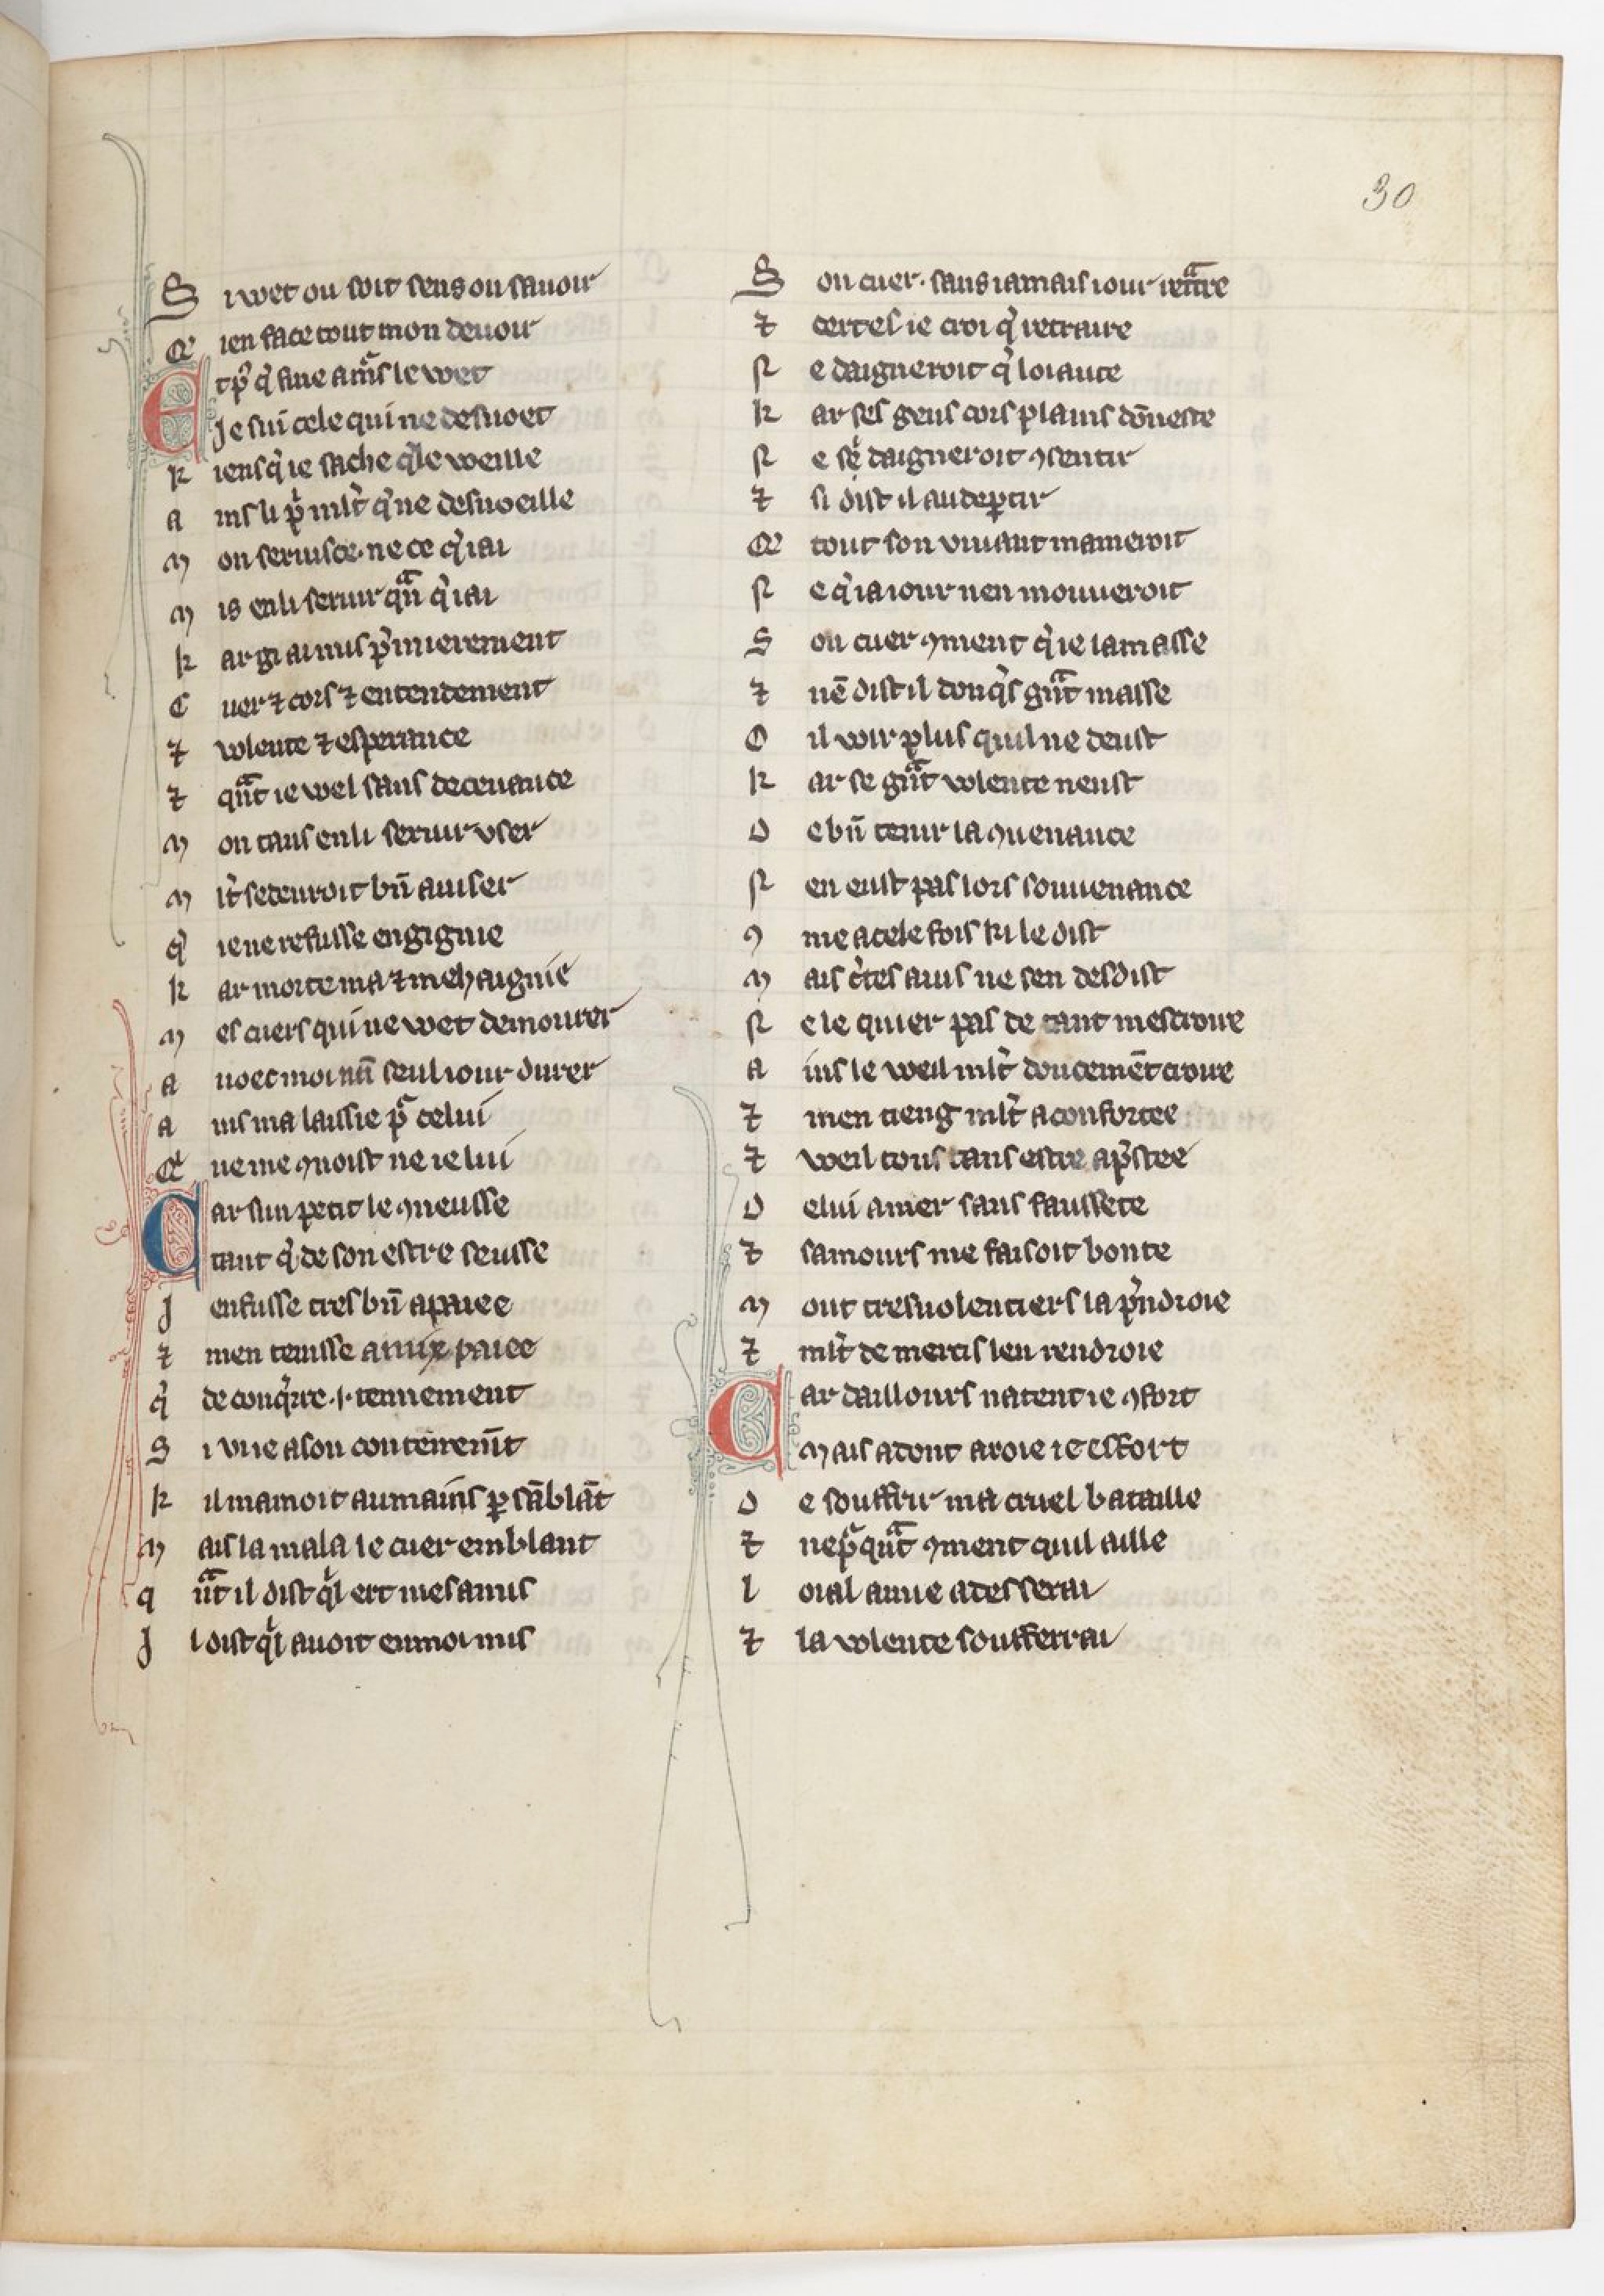 30
S i wet ou soit sens ou sauoir
Q' ien face tout mon deuoir
Et p͛ q̉ fine am͛s le wet
Je sui cele qui ne desuoet
R iens q̉ ie sache q̉le weille
A ins li p͛ mlt̉ q̉ ne desuoeille
M on seruisce· ne ce q̉ iai
M is en li seruir qn̄t q̉ iai
K ar gi ai mis p̉mierement
C uer ⁊ cors ⁊ entendement
⁊ volente ⁊ esperance
⁊ qn̄t ie wel sans deceuance
M on tans en li seruir vser
M lt̉ se deuroit bn̄ auiser
q̉ ie ne refusse engignie
K ar morte ma ⁊ mehaignie
M es cuers qui ne wet demourer
A uoec moi nū seul iour durer
A ins ma laissie p͛ celui
Q ue me ꝯnoist ne ie lui
Car sun petit le ꝯneusse
tant q̉ de son estre seusse
J en fusse tres bn̄ apaiee
⁊ men tenisse a mix paiee
q̉ de conq̉rre ·i· tennement
S i vue a son contenem̄t
K il mamoit au mains ꝑ sāblāt
M ais la mala le cuer emblant
q n̄t il dist q̉l ert mes amis
J l dist q̉l auoit en moi mis
S on cuer · sans iamais iour ret͛re
⁊ certes ie croi q̉ retraire
N e daigneroit q̉ loiaute
K ar ses gens cors plains dōneste
N e se̍ daigneroit ꝯsentir
⁊ si dist il au deꝑtir
Q̉ tout son viuant mameroit
N e q̉ ia iour nen mouueroit
S on cuer ꝯment q̉ ie lamasse
⁊ nē dist il donq̉s gn̄t masse
O il voir ꝑ lus quil ne deust
K ar se gn̄t volente neust
D e bn̄ tenir la ꝯuenance
N en eust pas lors souuenance
ꝯ me a cele fois ki le dist
M ais c̉tes auis ne sen desdist
N e le quier pas de tant mescroire
A ins le weil mlt̉ doucemēt croire
⁊ men tieng mlt̉ a confortee
⁊ weil tous tans estre ap̉stee
D e lui amer sans faussete
⁊ samours me faisoit bonte
M out tres uolentiers la p̉ndroie
⁊ mlt̉ de mercis len rendroie
Car daillours natent ie ꝯfort
Mais adont aroie ie effort
D e souffrir ma cruel bataille
⁊ nep͛qn̄t ꝯment quil aille
l oial amie ades serai
⁊ la volente soufferrai